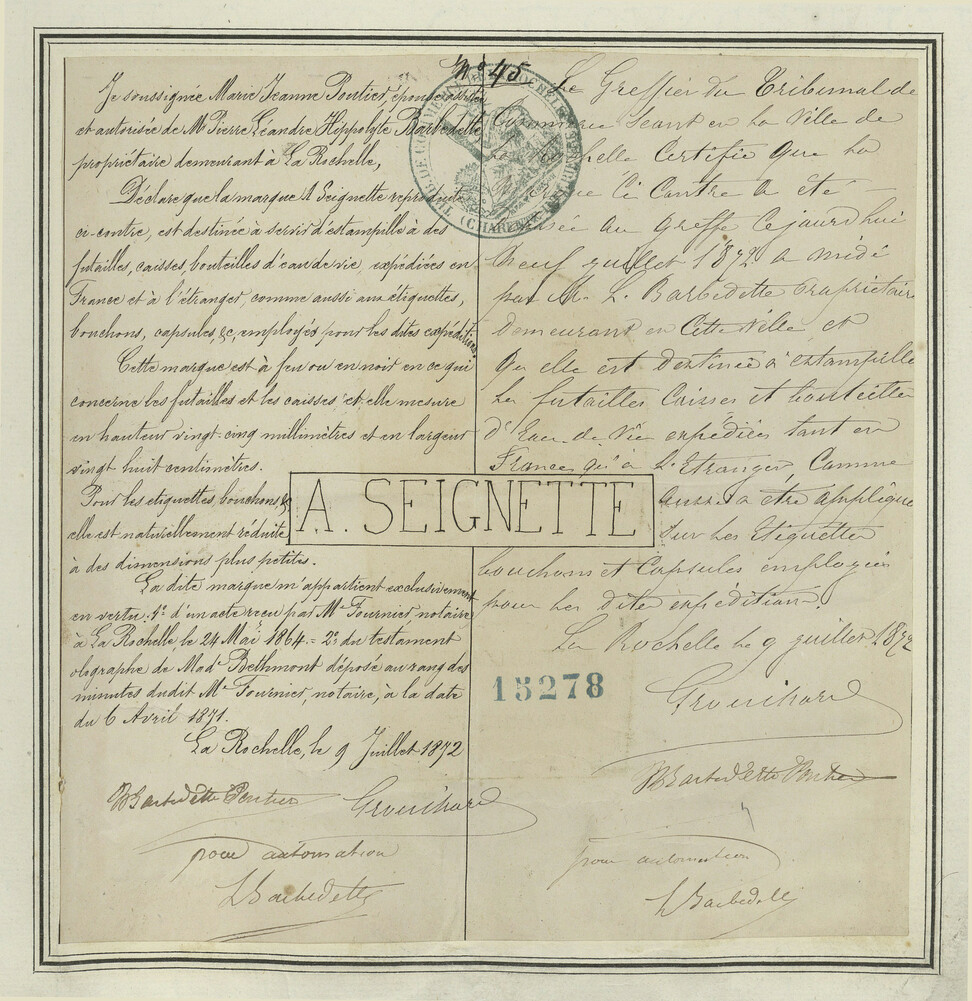 Nº 45
Je soussignée Marie Jeanne Poutier, épouse assistée
et autorisée de Mr Pierre Léandre Hippolyte Barbedette,
propriétaire demeurant à La Rochelle,
Déclare que la marque A Seignette reproduite
ci-contre, est destinée à servir d'estampille à des
futailles, caisses, bouteilles d'eau de vie, expédiées en
France et à l'étranger, comme aussi aux étiquettes,
bouchons, capsules, &c, employés pour les dites expéditions.
Cette marque est à feu ou en noir en ce qui
concerne les futailles et les caisses et elle mesure
en hauteur vingt-cinq millimètres et en largeur
vingt huit centimètres.
Pour les étiquettes, bouchons, &c
elle est naturellement réduite
à des dimensions plus petites.
La dite marque m'appartient exclusivement
en vertu: 1º d'un acte reçu par Me Fournier, notaire
à La Rochelle, le 24 Mai 1864 = 2º du testament
olographe de Made Bethmont déposé au rang des
minutes dudit Me Fournier, notaire, à la date
du 6 Avril 1871.
La Rochelle, le 9 Juillet 1872
Barbedette Poutier
Grouihard
pour autorisation
L Barbedette
A. SEIGNETTE
TRIB. DE COMMERCE
(CHARENTE INFERIEURE)
Le Greffier du Tribunal de
Commerce Séant en La Ville de
La Rochelle Certifie que La
Marque Ci Contre a été
déposée au Greffe Cejourd'hui
Neuf juillet 1872 a midi
par M. L. Barbedette propriétaire
Demeurant en Cette Ville et
Qu'elle est Destinée à estampiller
Les futailles Caisses et bouteilles
d'Eau-de-Vie expédiées tant en
France, qu'à L'Etranger Comme
aussi a être appliquée
Sur Les Etiquettes
bouchons et Capsules employées
pour Les dites expéditions.
La Rochelle le 9 juillet 1872
15278
Grouihard
Barbedette Poutier
pour autorisation
L Barbedette